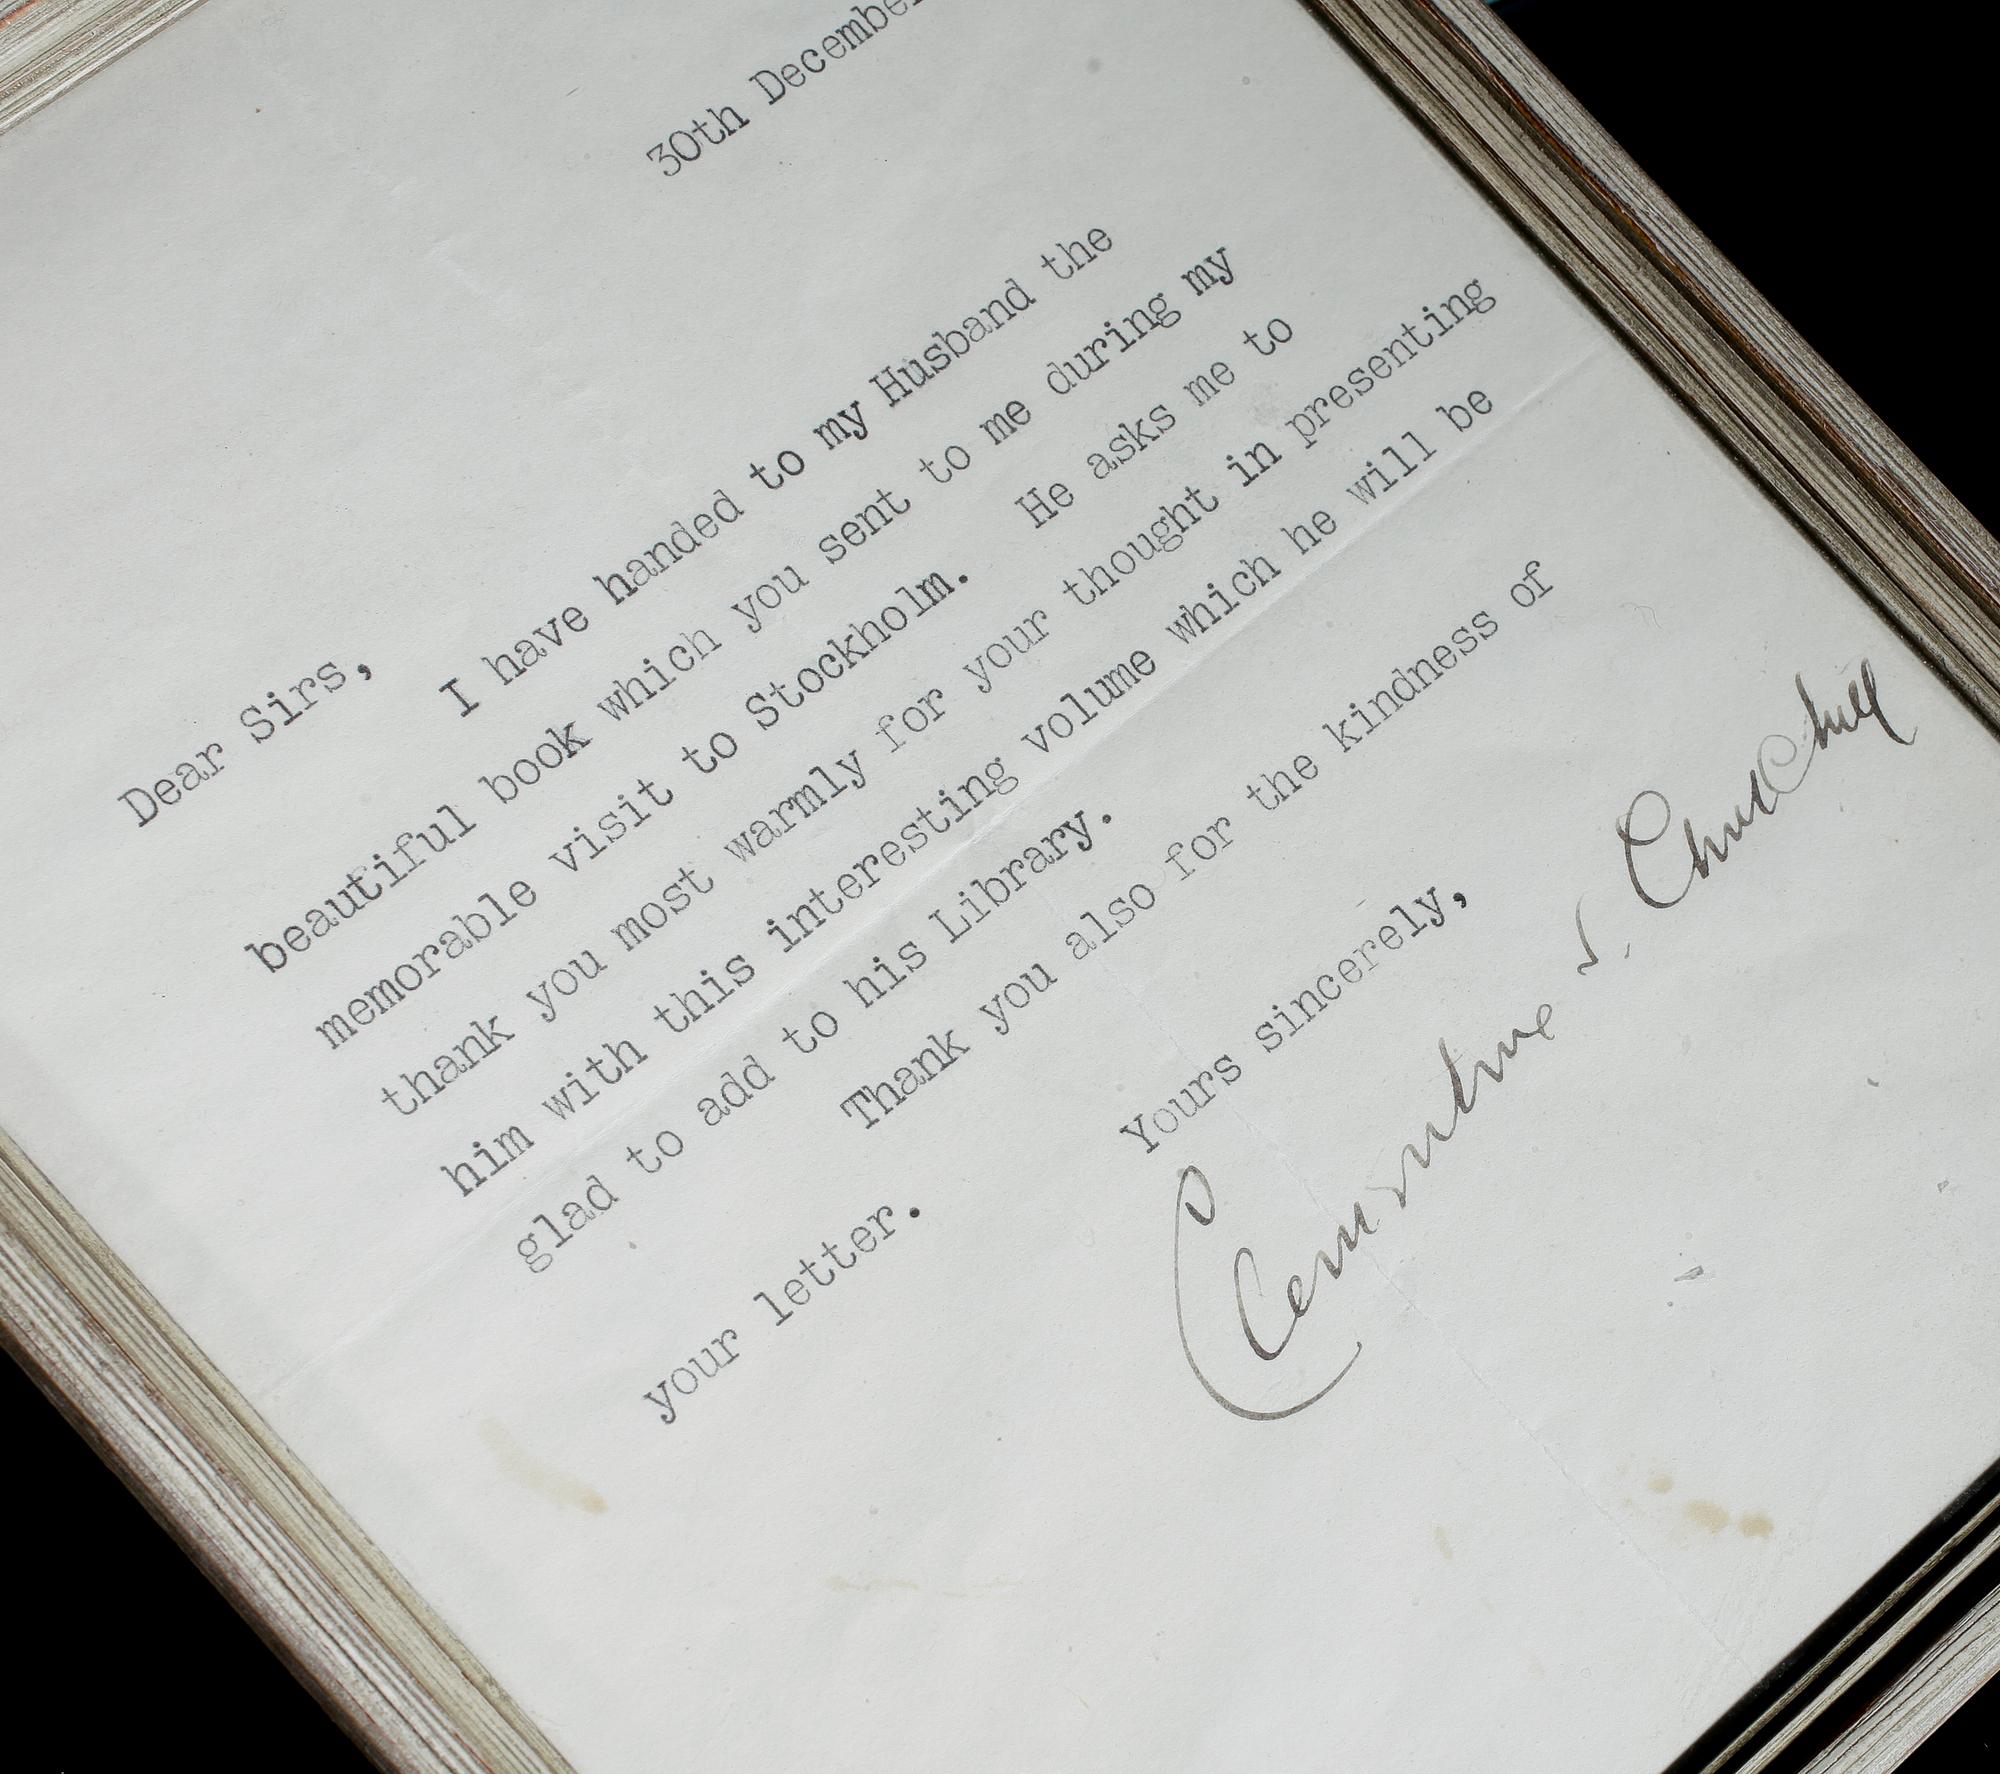 30th December
Dear Sirs,
I have handed to my Husband the
beautiful book which you sent to me during my
memorable visit to Stockholm. He asks me to
thank you most warmly for your thought in presenting
him with this interesting volume which he will be
glad to add to his Library.
Thank you also for the kindness of
your letter.
Yours sincerely,
Clementine S. Churchill